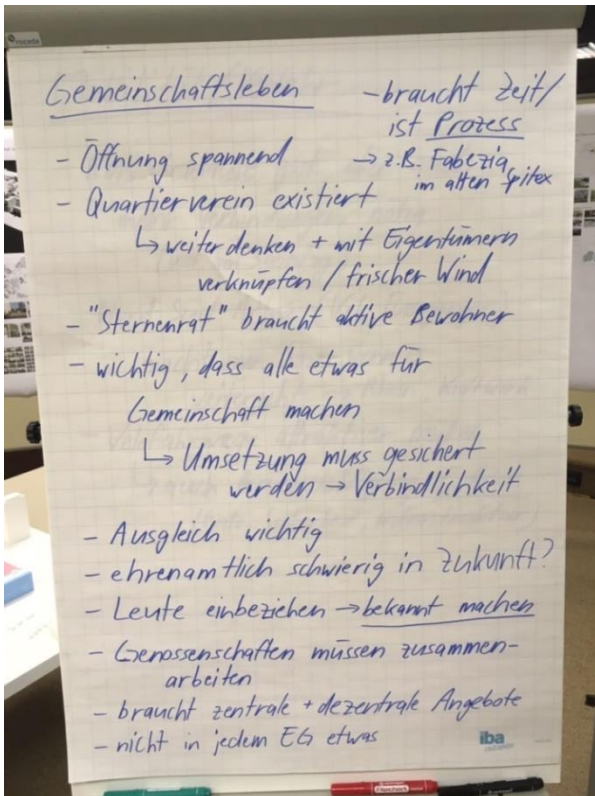 Gemeinschaftsleben
- braucht Zeit/
ist Prozess
→ z.B. Fabezia
im alten Spitex
- Öffnung spannend
- Quartierverein existiert
↳ weiter denken + mit Eigentümern
verknüpfen / frischer Wind
- "Sternenrat" braucht aktive Bewohner
- wichtig, dass alle etwas für
Gemeinschaft machen
↳ Umsetzung muss gesichert
werden → Verbindlichkeit
- Ausgleich wichtig
- ehrenamtlich schwierig in Zukunft?
- Leute einbeziehen → bekannt machen
- Genossenschaften müssen zusammen-
arbeiten
- braucht zentrale + dezentrale Angebote
- nicht in jedem EG etwas
iba